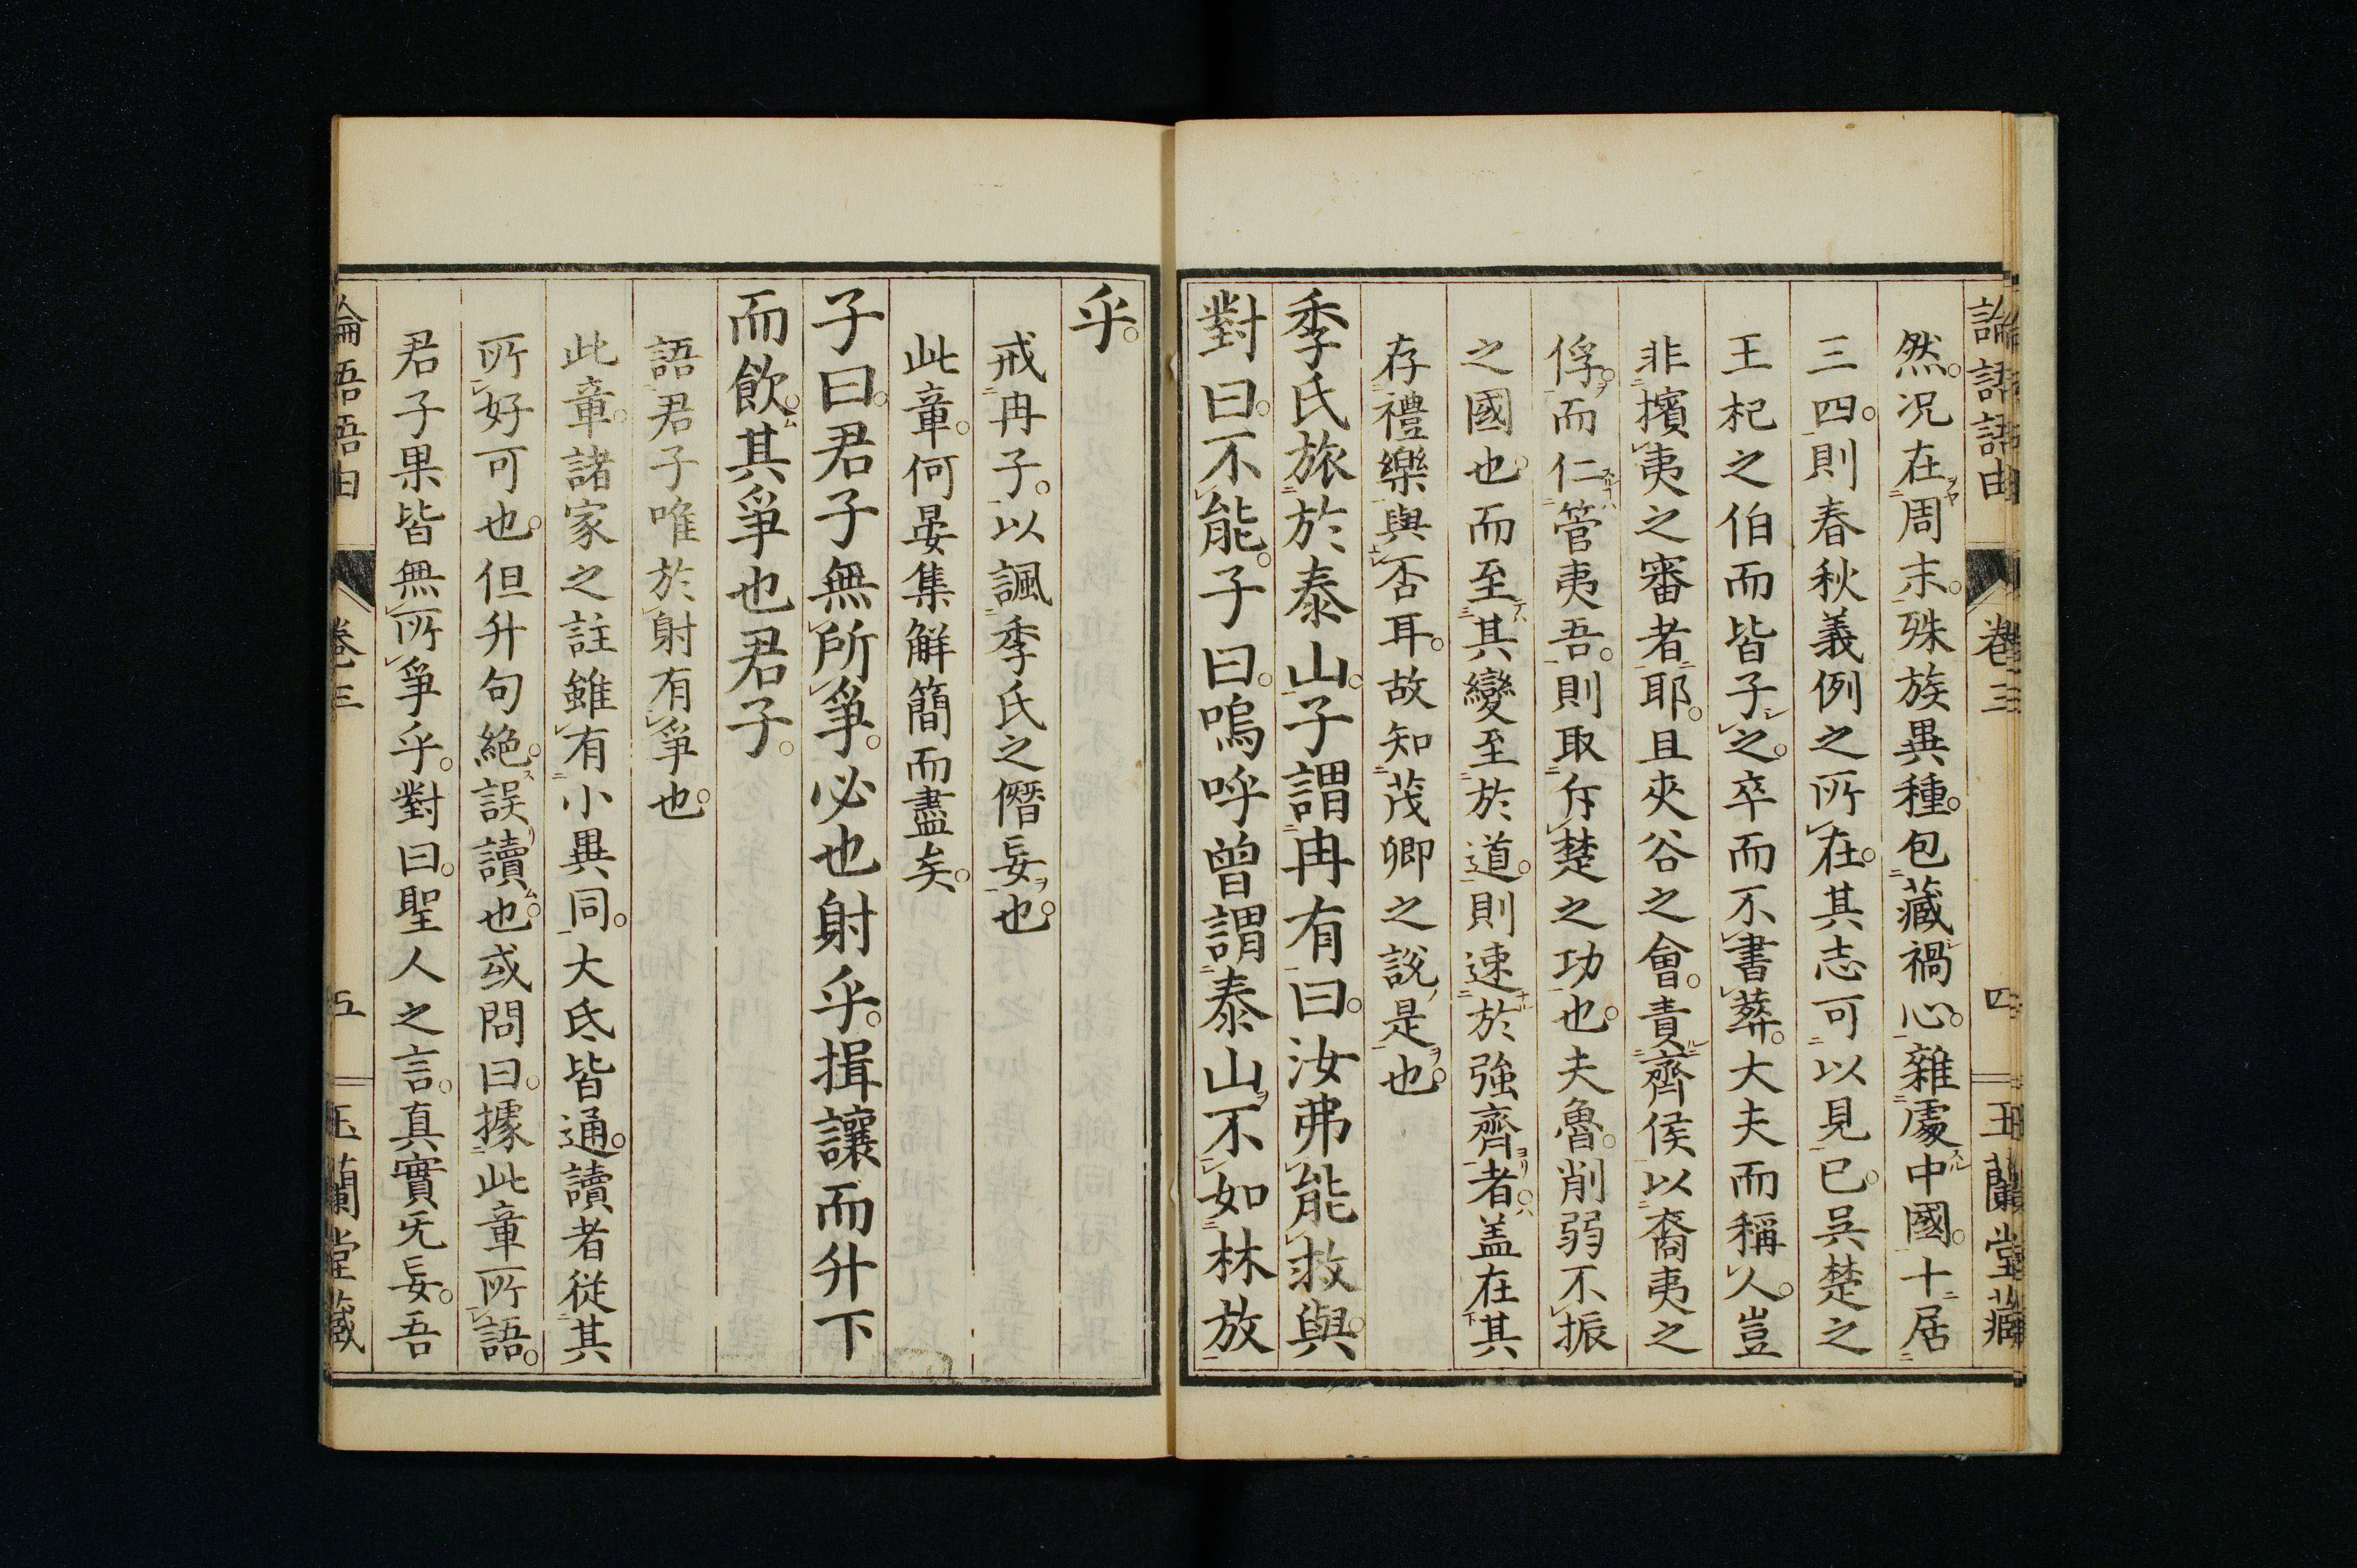 論語語由 卷三 四 玉蘭堂藏
然。況在周末。殊族異種。包藏禍心。雜處中國。十居
三四。則春秋義例之所在。其志可以見已。吳楚之
王杞之伯而皆子之。卒而不書葬。大夫而稱人。豈
非擯夷之審者耶。且夾谷之會。責齊侯以裔夷之
俘。而仁管夷吾。則取斥楚之功也。夫魯。削弱不振
之國也。而至其變至於道。則速於強齊者。盖在其
存禮樂與否耳。故知茂卿之說是也。
季氏旅於泰山。子謂冉有曰。汝弗能救與。
對曰。不能。子曰。嗚呼曾謂泰山不如林放
乎。
戒冉子。以諷季氏之僭妄也。
此章。何晏集解簡而盡矣。
子曰。君子無所爭。必也射乎。揖讓而升下
而飲。其爭也君子。
語君子唯於射有爭也。
此章。諸家之註雖有小異同。大氐皆通。讀者從其
所好可也。但升句絕。誤讀也。或問曰。據此章所語。
君子果皆無所爭乎。對曰。聖人之言。真實旡妄。吾
論語語由 卷三 五 玉蘭堂藏